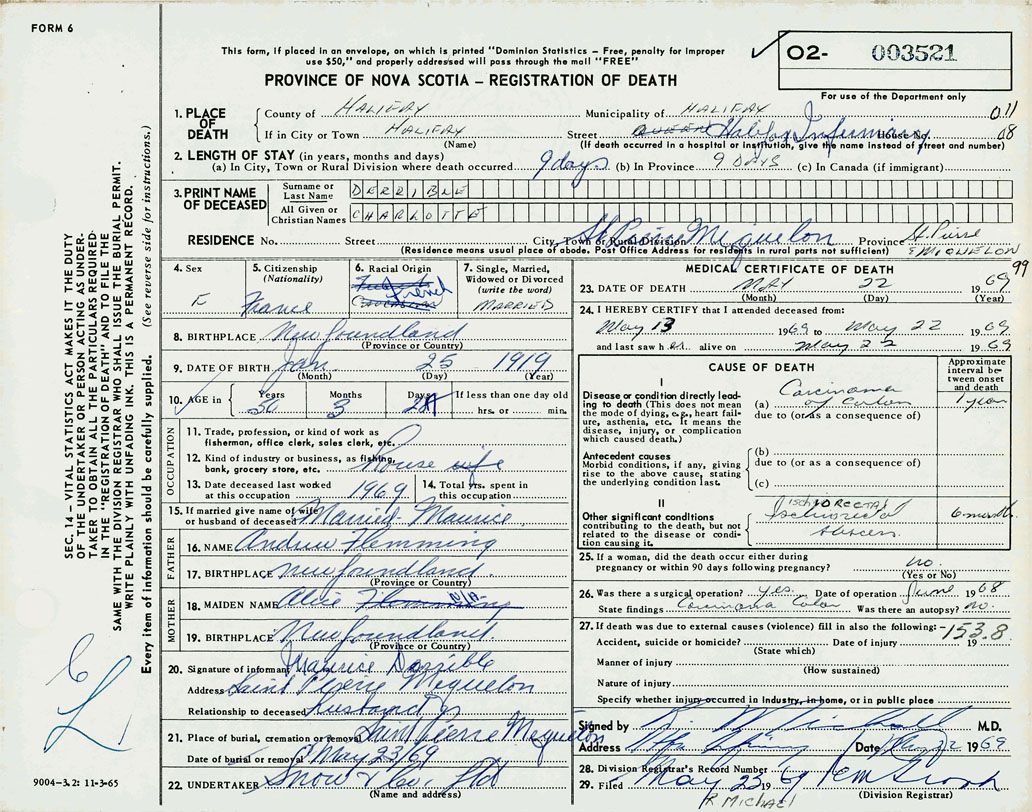 FORM 6
This form, if placed in an envelope, on which is printed "Dominion Statistics – Free, penalty for improper
use $50," and properly addressed will pass through the mail "FREE"
PROVINCE OF NOVA SCOTIA – REGISTRATION OF DEATH
✓ 02- 003521
For use of the Department only
SEC. 14 – VITAL STATISTICS ACT MAKES IT THE DUTY
OF THE UNDERTAKER OR PERSON ACTING AS UNDER-
TAKER TO OBTAIN ALL THE PARTICULARS REQUIRED
IN THE "REGISTRATION OF DEATH" AND TO FILE THE
SAME WITH THE DIVISION REGISTRAR WHO SHALL ISSUE THE BURIAL PERMIT.
WRITE PLAINLY WITH UNFADING INK. THIS IS A PERMANENT RECORD.
Every item of information should be carefully supplied. (See reverse side for instructions.)
1. PLACE OF DEATH
County of HALIFAX Municipality of HALIFAX 011
If in City or Town HALIFAX Street Halifax Infirmary House No. 08
(Name) (If death occurred in a hospital or institution, give the name instead of street and number)
2. LENGTH OF STAY (in years, months and days)
(a) In City, Town or Rural Division where death occurred 9 days (b) In Province 9 DAYS (c) In Canada (if immigrant)
3. PRINT NAME OF DECEASED
Surname or Last Name DERRIBLE
All Given or Christian Names CHARLOTTE
RESIDENCE No. Street City, Town or Rural Division St Pierre Miquelon Province St. Pierre
(Residence means usual place of abode. Post Office Address for residents in rural parts not sufficient) & MIQUELON
99
4. Sex F
5. Citizenship (Nationality) France
6. Racial Origin French
7. Single, Married, Widowed or Divorced (write the word) MARRIED
8. BIRTHPLACE Newfoundland
(Province or Country)
9. DATE OF BIRTH Jan 25 1919
(Month) (Day) (Year)
10. AGE in Years 50 Months 3 Days 27 If less than one day old
hrs. or min.
OCCUPATION
11. Trade, profession or kind of work as
fisherman, office clerk, sales clerk, etc.
12. Kind of industry or business, as fishing,
bank, grocery store, etc. House wife
13. Date deceased last worked
at this occupation 1969
14. Total yrs. spent in
this occupation
15. If married give name of wife
or husband of deceased Married - Maurice
FATHER
16. NAME Andrew Flemming
17. BIRTHPLACE Newfoundland
(Province or Country)
MOTHER
18. MAIDEN NAME Alice Flemming
19. BIRTHPLACE Newfoundland
(Province or Country)
20. Signature of informant Maurice Derrible
Address Saint Pierre Mequelon
Relationship to deceased husband
21. Place of burial, cremation or removal Saint Pierre Mequelon
Date of burial or removal May 23/69
22. UNDERTAKER Snow & Co. Ltd
(Name and address)
MEDICAL CERTIFICATE OF DEATH
23. DATE OF DEATH MAY 22 1969
(Month) (Day) (Year)
24. I HEREBY CERTIFY that I attended deceased from:
May 13 1969 to May 22 1969
and last saw her alive on May 22 1969
CAUSE OF DEATH
Approximate interval between onset and death
I
Disease or condition directly lead-
ing to death (This does not mean
the mode of dying, e.g., heart fail-
ure, asthenia, etc. It means the
disease, injury, or complication
which caused death.)
(a) Carcinoma of Colon 1 year
due to (or as a consequence of)
Antecedent causes
Morbid conditions, if any, giving
rise to the above cause, stating
the underlying condition last.
(b)
due to (or as a consequence of)
(c)
II
Other significant conditions
contributing to the death, but not
related to the disease or condi-
tion causing it.
ISCHIORECTAL
Ischiorectal 6 months
abscess
25. If a woman, did the death occur either during
pregnancy or within 90 days following pregnancy? no.
(Yes or No)
26. Was there a surgical operation? yes. Date of operation June 1968
State findings Carcinoma Colon Was there an autopsy? no.
27. If death was due to external causes (violence) fill in also the following: - 153.8
Accident, suicide or homicide? Date of injury 19
(State which)
Manner of injury
(How sustained)
Nature of injury
Specify whether injury occurred in Industry, in home, or in public place
Signed by M.D.
Address Date May 22 1969
28. Division Registrar's Record Number
29. Filed May 23 1969
(Division Registrar)
R MICHAEL
9004–3.2: 11-3-65